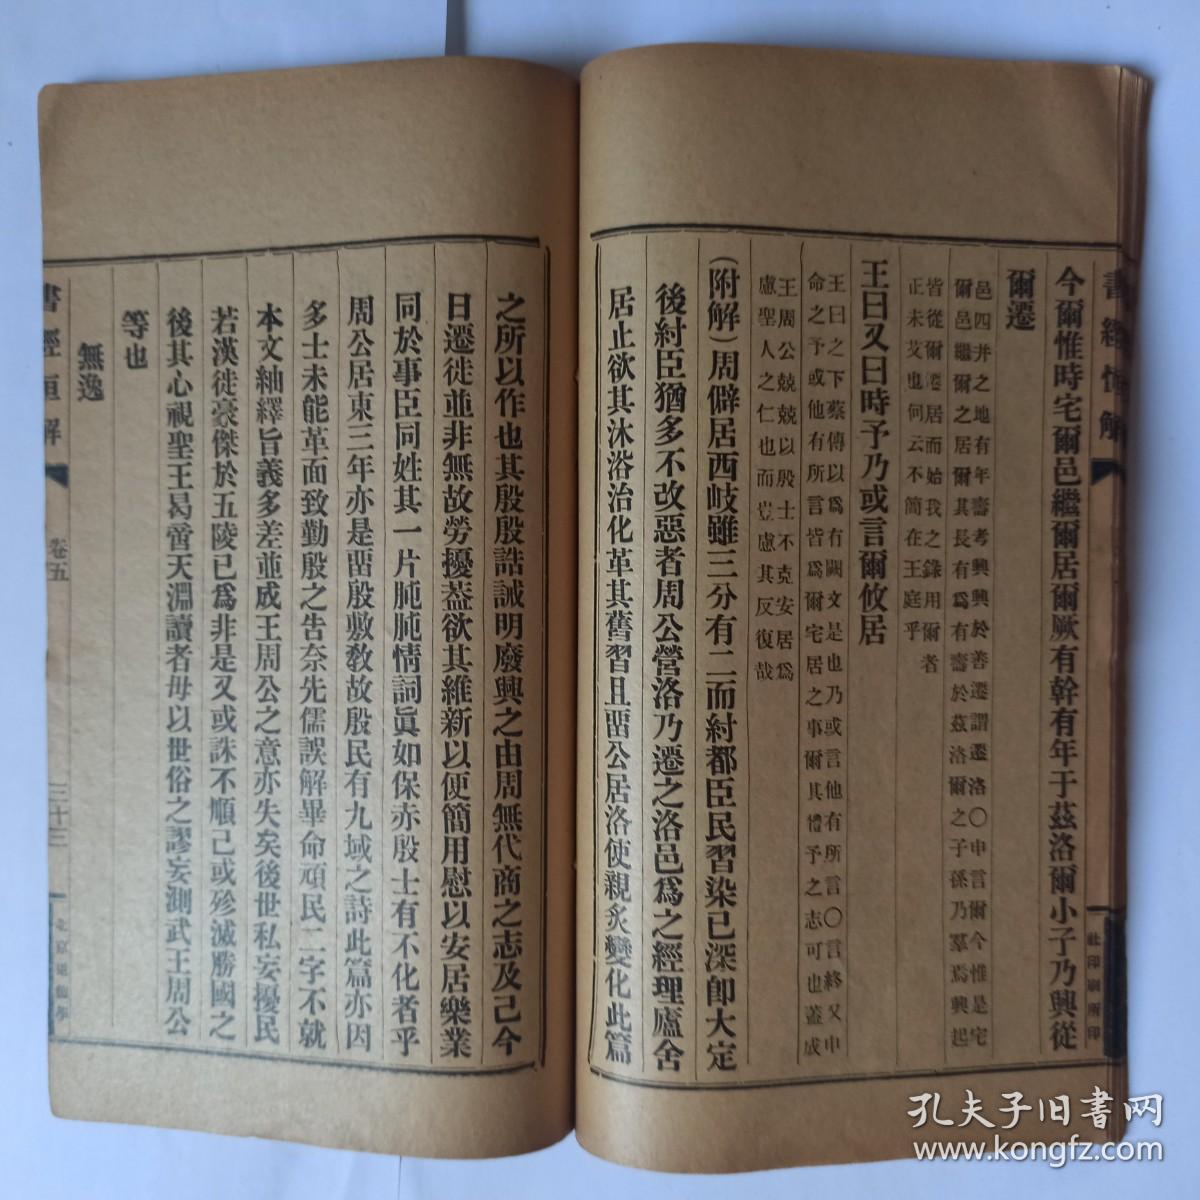 書經恒解
社印刷所印
今爾惟時宅爾邑繼爾居爾厥有幹有年于茲洛爾小子乃興從
爾遷
邑四井之地有年壽考興興於善遷謂遷洛〇申言爾今惟是宅
爾邑繼爾之居爾其長有爲有壽於茲洛爾之子孫乃羣焉興起
皆從爾遷居而始我之錄用爾者
正未艾也何云不簡在王庭乎
王曰又曰時予乃或言爾攸居
王曰之下蔡傳以爲有闕文是也乃或言他有所言〇言終又申
命之予或他有所言皆爲爾宅居之事爾其禮予之志可也蓋成
王周公兢兢以殷士不克安居爲
慮聖人之仁也而豈慮其反復哉
(附解)周僻居西岐雖三分有二而紂都臣民習染已深卽大定
後紂臣猶多不改惡者周公營洛乃遷之洛邑爲之經理廬舍
居止欲其沐浴治化革其舊習且畱公居洛使親炙變化此篇
之所以作也其殷殷誥誡明廢興之由周無代商之志及己今
日遷徙並非無故勞擾葢欲其維新以便簡用慰以安居樂業
同於事臣同姓其一片肫肫情詞眞如保赤殷士有不化者乎
周公居東三年亦是畱殷敷敎故殷民有九域之詩此篇亦因
多士未能革面致勤殷之告奈先儒誤解畢命頑民二字不就
本文紬繹旨義多差並成王周公之意亦失矣後世私妄擾民
若漢徙豪傑於五陵已爲非是又或誅不順己或殄滅勝國之
後其心視聖王曷啻天淵讀者毋以世俗之謬妄測武王周公
等也
無逸
書經恒解
卷五
三十三
北京道德學
孔夫子旧書网
www.kongfz.com